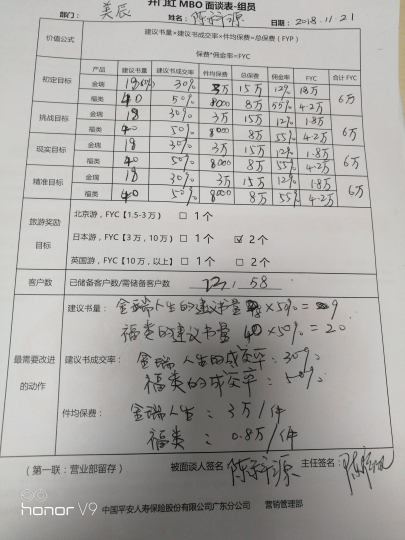 开门红 MBO 面谈表-组员
部门： 美辰 姓名： 日期： 2018.11.21
价值公式 建议书量×建议书成交率×件均保费=总保费(FYP)
保费*佣金率=FYC
产品 建议书量 建议书成交率 件均保费 总保费 佣金率 FYC 合计 FYC
初定目标 金瑞 18 30% 3万 15万 12% 1.8万 6万
福类 40 50% 8000 8万 55% 4.2万
挑战目标 金瑞 18 30% 3万 15万 12% 1.8万 6万
福类 40 50% 8000 8万 55% 4.2万
现实目标 金瑞 18 30% 3万 15万 12% 1.8万 6万
福类 40 50% 8000 8万 55% 4.2万
精准目标 金瑞 18 30% 3万 15万 12% 1.8万 6万
福类 40 50% 8000 8万 55% 4.2万
旅游奖励目标
北京游，FYC【1.5-3 万】 □ 1个
日本游，FYC【3 万，10 万） □ 1个 ☑ 2个
英国游，FYC【10 万，以上】 □ 1个 □ 2个
客户数 已储备客户数/需储备客户数 58
最需要改进的动作
建议书量： 金瑞人生的建议书量 ×50% = 9
福类的建议书量 40×50% = 20
建议书成交率： 金瑞人生的成交率：30%
福类的成交率：50%
件均保费： 金瑞人生：3万/件
福类：0.8万/件
（第一联：营业部留存） 被面谈人签名： 主任签名：
中国平安人寿保险股份有限公司广东分公司 营销管理部
honor V9